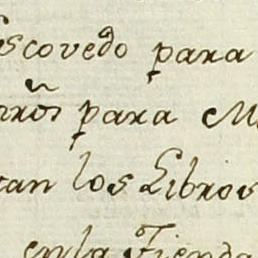 scovedo para
para M
tan los Libros
en la Tienda